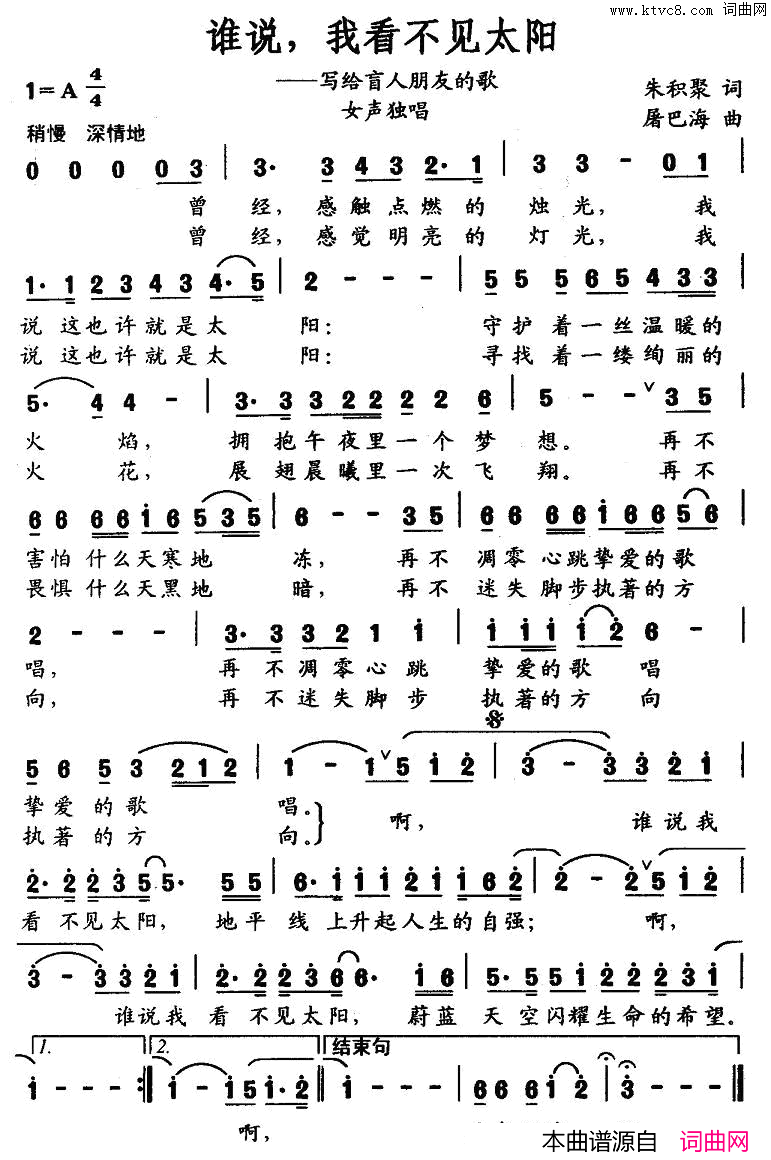 www.ktvc8.com 词曲网
谁说，我看不见太阳
——写给盲人朋友的歌
女声独唱
1=A 4/4
朱积聚 词
屠巴海 曲
稍慢 深情地
0 0 0 0 3 | 3· 3 4 3 2· 1 | 3 3 - 0 1 |
曾 经，感触点燃的 烛光， 我
曾 经，感觉明亮的 灯光， 我
1· 1 2 3 4 3 4· 5 | 2 - - - | 5 5 5 6 5 4 3 3 |
说 这也许就是太 阳： 守护着一丝温暖的
说 这也许就是太 阳： 寻找着一缕绚丽的
5· 4 4 - | 3· 3 3 2 2 2 2 6 | 5 - - ∨ 3 5 |
火 焰， 拥 抱午夜里一个梦 想。 再不
火 花， 展 翅晨曦里一次飞 翔。 再不
6 6 6 6 1 6 5 3 5 | 6 - - 3 5 | 6 6 6 6 1 6 6 5 6 |
害怕 什么天寒地 冻， 再不 凋零 心跳挚爱的歌
畏惧 什么天黑地 暗， 再不 迷失 脚步执著的方
2 - - - | 3· 3 3 2 1 1 | 1 1 1 1 2 6 - |
唱， 再 不凋零心跳 挚爱的歌 唱
向， 再 不迷失脚步 执著的方 向
5 6 5 3 2 1 2 | 1 - 1 ∨ 5 1 2 | 3 - 3 3 2 1 |
挚爱 的歌 唱。 啊， 谁说我
执著 的方 向。
2· 2 2 3 5 5· 5 5 | 6· 1 1 1 2 1 1 6 2 | 2 - 2 ∨ 5 1 2 |
看 不见太阳， 地平 线 上升起人生的自强； 啊，
3 - 3 3 2 1 | 2· 2 2 3 6 6· 1 6 | 5· 5 5 1 2 2 2 3 1 |
谁说我 看 不见太阳， 蔚蓝 天 空闪耀生命的希望。
1. 2. 结束句
1 - - - :| 1 - 1 5 1· 2 :| 1 - - - | 6 6 6 1 2 | 3 - - - |
啊，
本曲谱源自 词曲网